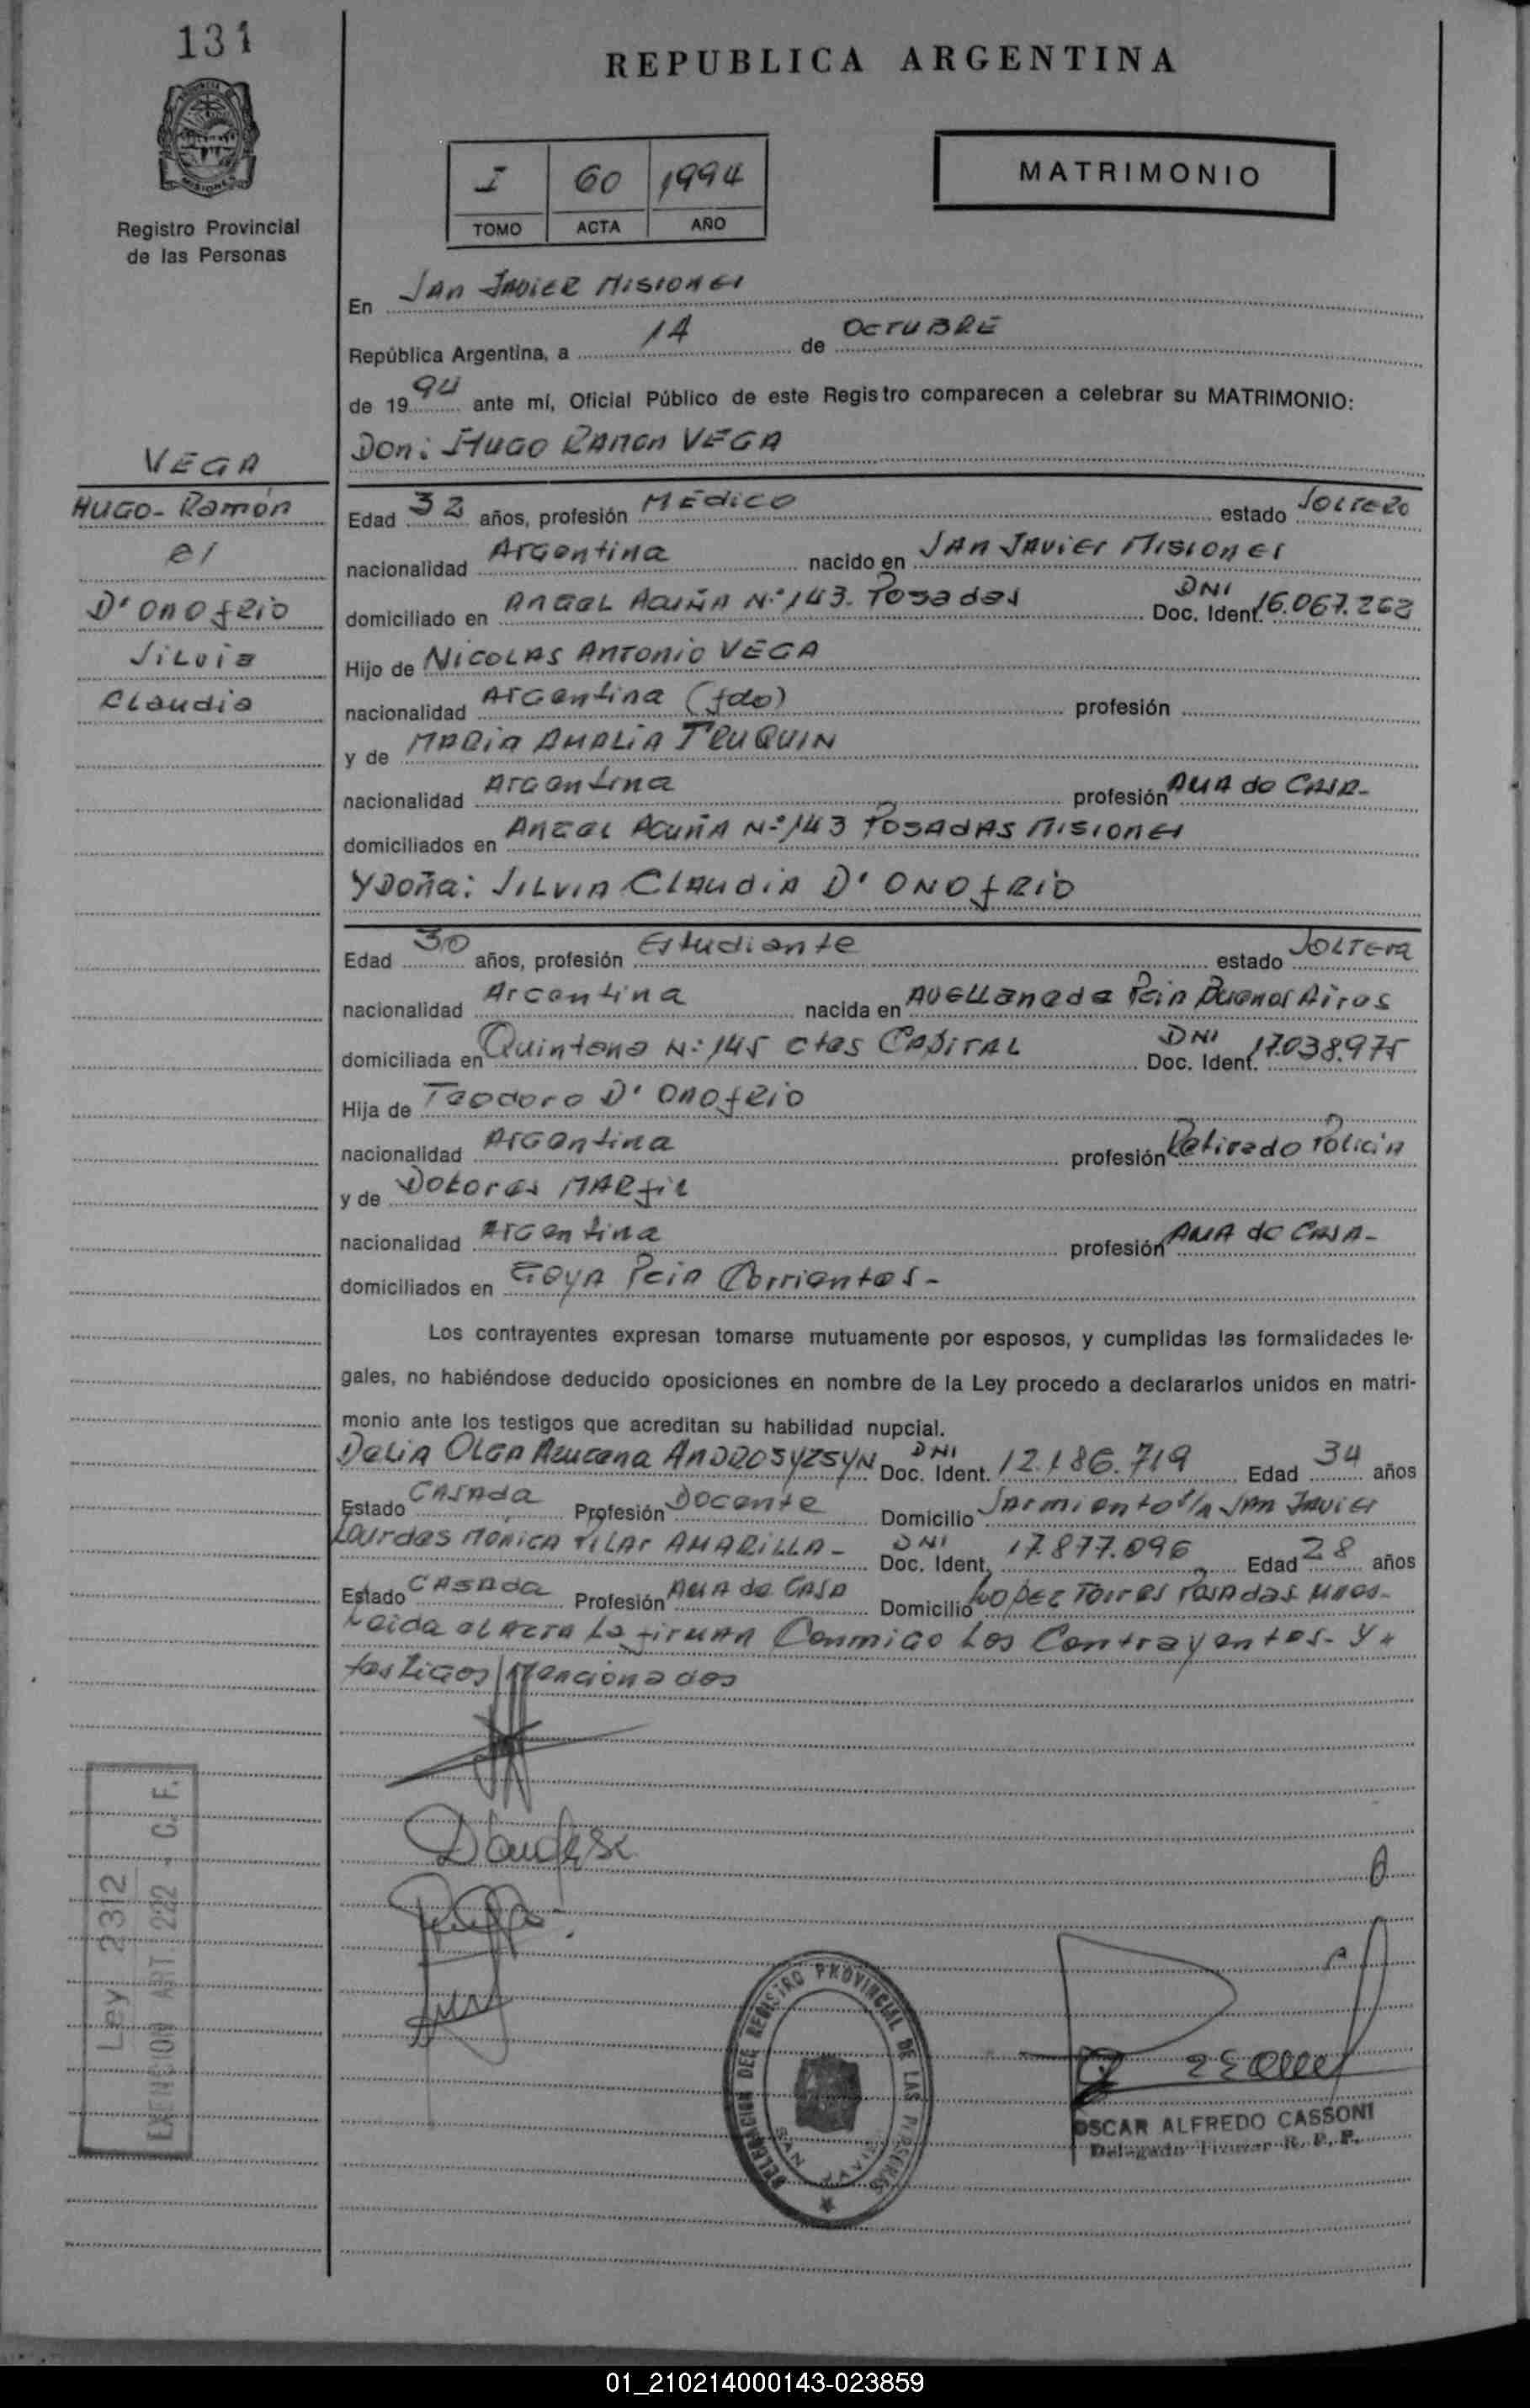 131
REPUBLICA ARGENTINA
MISIONES
Registro Provincial
de las Personas
I 60 1994
TOMO ACTA AÑO
MATRIMONIO
En San Javier Misiones
República Argentina, a 14 de Octubre
de 1994 ante mí, Oficial Público de este Registro comparecen a celebrar su MATRIMONIO:
Don: Hugo Ramon VEGA
VEGA
Hugo-Ramón
c/
D'Onofrio
Silvia
Claudia
Edad 32 años, profesión Médico estado Soltero
nacionalidad Argentina nacido en San Javier Misiones
domiciliado en Angel Acuña N:º 143. Posadas DNI Doc. Ident. 16.067.262
Hijo de Nicolas Antonio VEGA
nacionalidad Argentina (fdo) profesión
y de Maria Amalia TRUQUIN
nacionalidad Argentina profesión Ama de Casa-
domiciliados en Angel Acuña N:º 143 Posadas Misiones
Y Doña: Silvia Claudia D'ONOfRiO
Edad 30 años, profesión Estudiante estado Soltera
nacionalidad Argentina nacida en Avellaneda Pcia Buenos Aires
domiciliada en Quintana N:º 145 Ctes Capital DNI Doc. Ident. 17.038.975
Hija de Teodoro D'Onofrio
nacionalidad Argentina profesión Retirado Policia
y de Dolores MARfil
nacionalidad Argentina profesión Ama de Casa-
domiciliados en Goya Pcia Corrientes-
Los contrayentes expresan tomarse mutuamente por esposos, y cumplidas las formalidades le-
gales, no habiéndose deducido oposiciones en nombre de la Ley procedo a declararlos unidos en matri-
monio ante los testigos que acreditan su habilidad nupcial.
Delia Olga Azucena ANDROSYZSYN DNI Doc. Ident. 12.186.719 Edad 34 años
Estado Casada Profesión Docente Domicilio Sarmiento s/n San Javier
Lourdes Mónica Pilar AMARILLA- DNI Doc. Ident. 17.877.096 Edad 28 años
Estado Casada Profesión Ama de Casa Domicilio Lopez Torres Posadas Mnes-
Leida el Acta La firman Conmigo Los Contrayentes- y
testigos Mencionados
Ley 2312
EXENCION ART. 222 - C. F.
DELEGACION DEL REGISTRO PROVINCIAL DE LAS PERSONAS
SAN JAVIER
OSCAR ALFREDO CASSONI
Delegado Titular R. P. P.
01_210214000143-023859